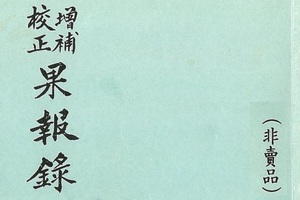 增補
校正
果報錄
(非賣品)